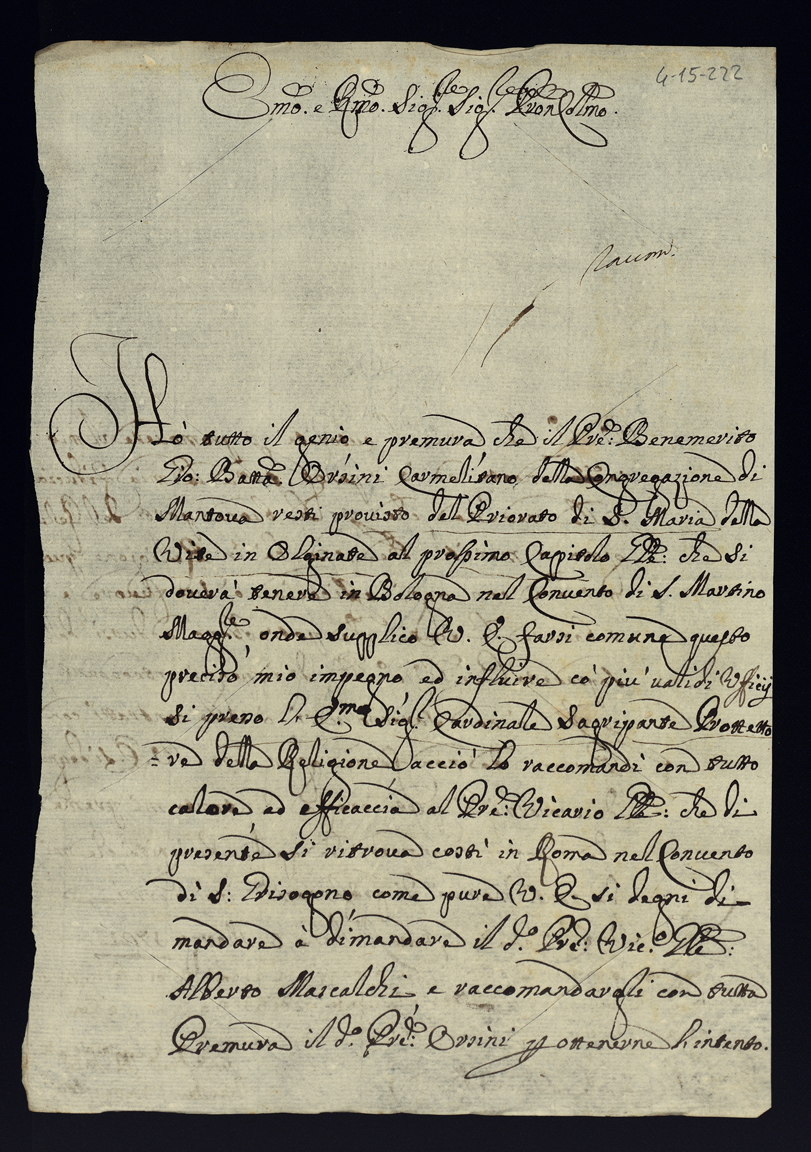 4-15-222
Emo. e Rmo. Sig.re Sig.re Pron Colmo.
Raccom.
Hó tutto il genio e premura che il Pre: Benemerito
Gio: Batta Orsini Carmelitano della Congregazione di
Mantova resti provisto del Priorato di S. Maria della
Vite in Olginate al prossimo Capitolo Gle: che si
doverá tenere in Bologna nel Convento di S. Martino
Magg.re onde supplico V. E. farsi comune questo
preciso mio impegno ed influire có piú validi Vfficij
si preso l'E.mo Sig.r Cardinale Sagripante Protetto
=re della Religione acció lo raccomandi con tutto
calore ed efficaccia al Pre: Vicario Gle: che di
presente si ritrova costi in Roma nel Convento
di S: Grisogono come pure V. E. si degni di
mandare à dimandare il d.o Pre: Vic.o Gle:
Alberto Mascalchi e raccomandargli con tutta
Premura il d.o Pre: Orsini p ottenerne l'intento.